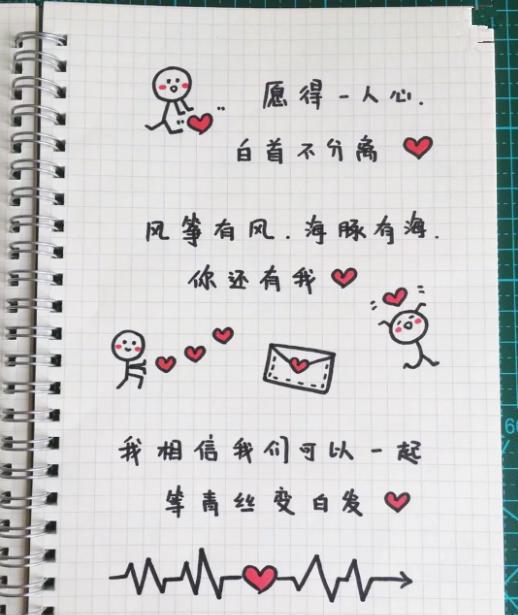 愿得一人心.
白首不分离
风筝有风.海豚有海.
你还有我
我相信我们可以一起
等青丝变白发